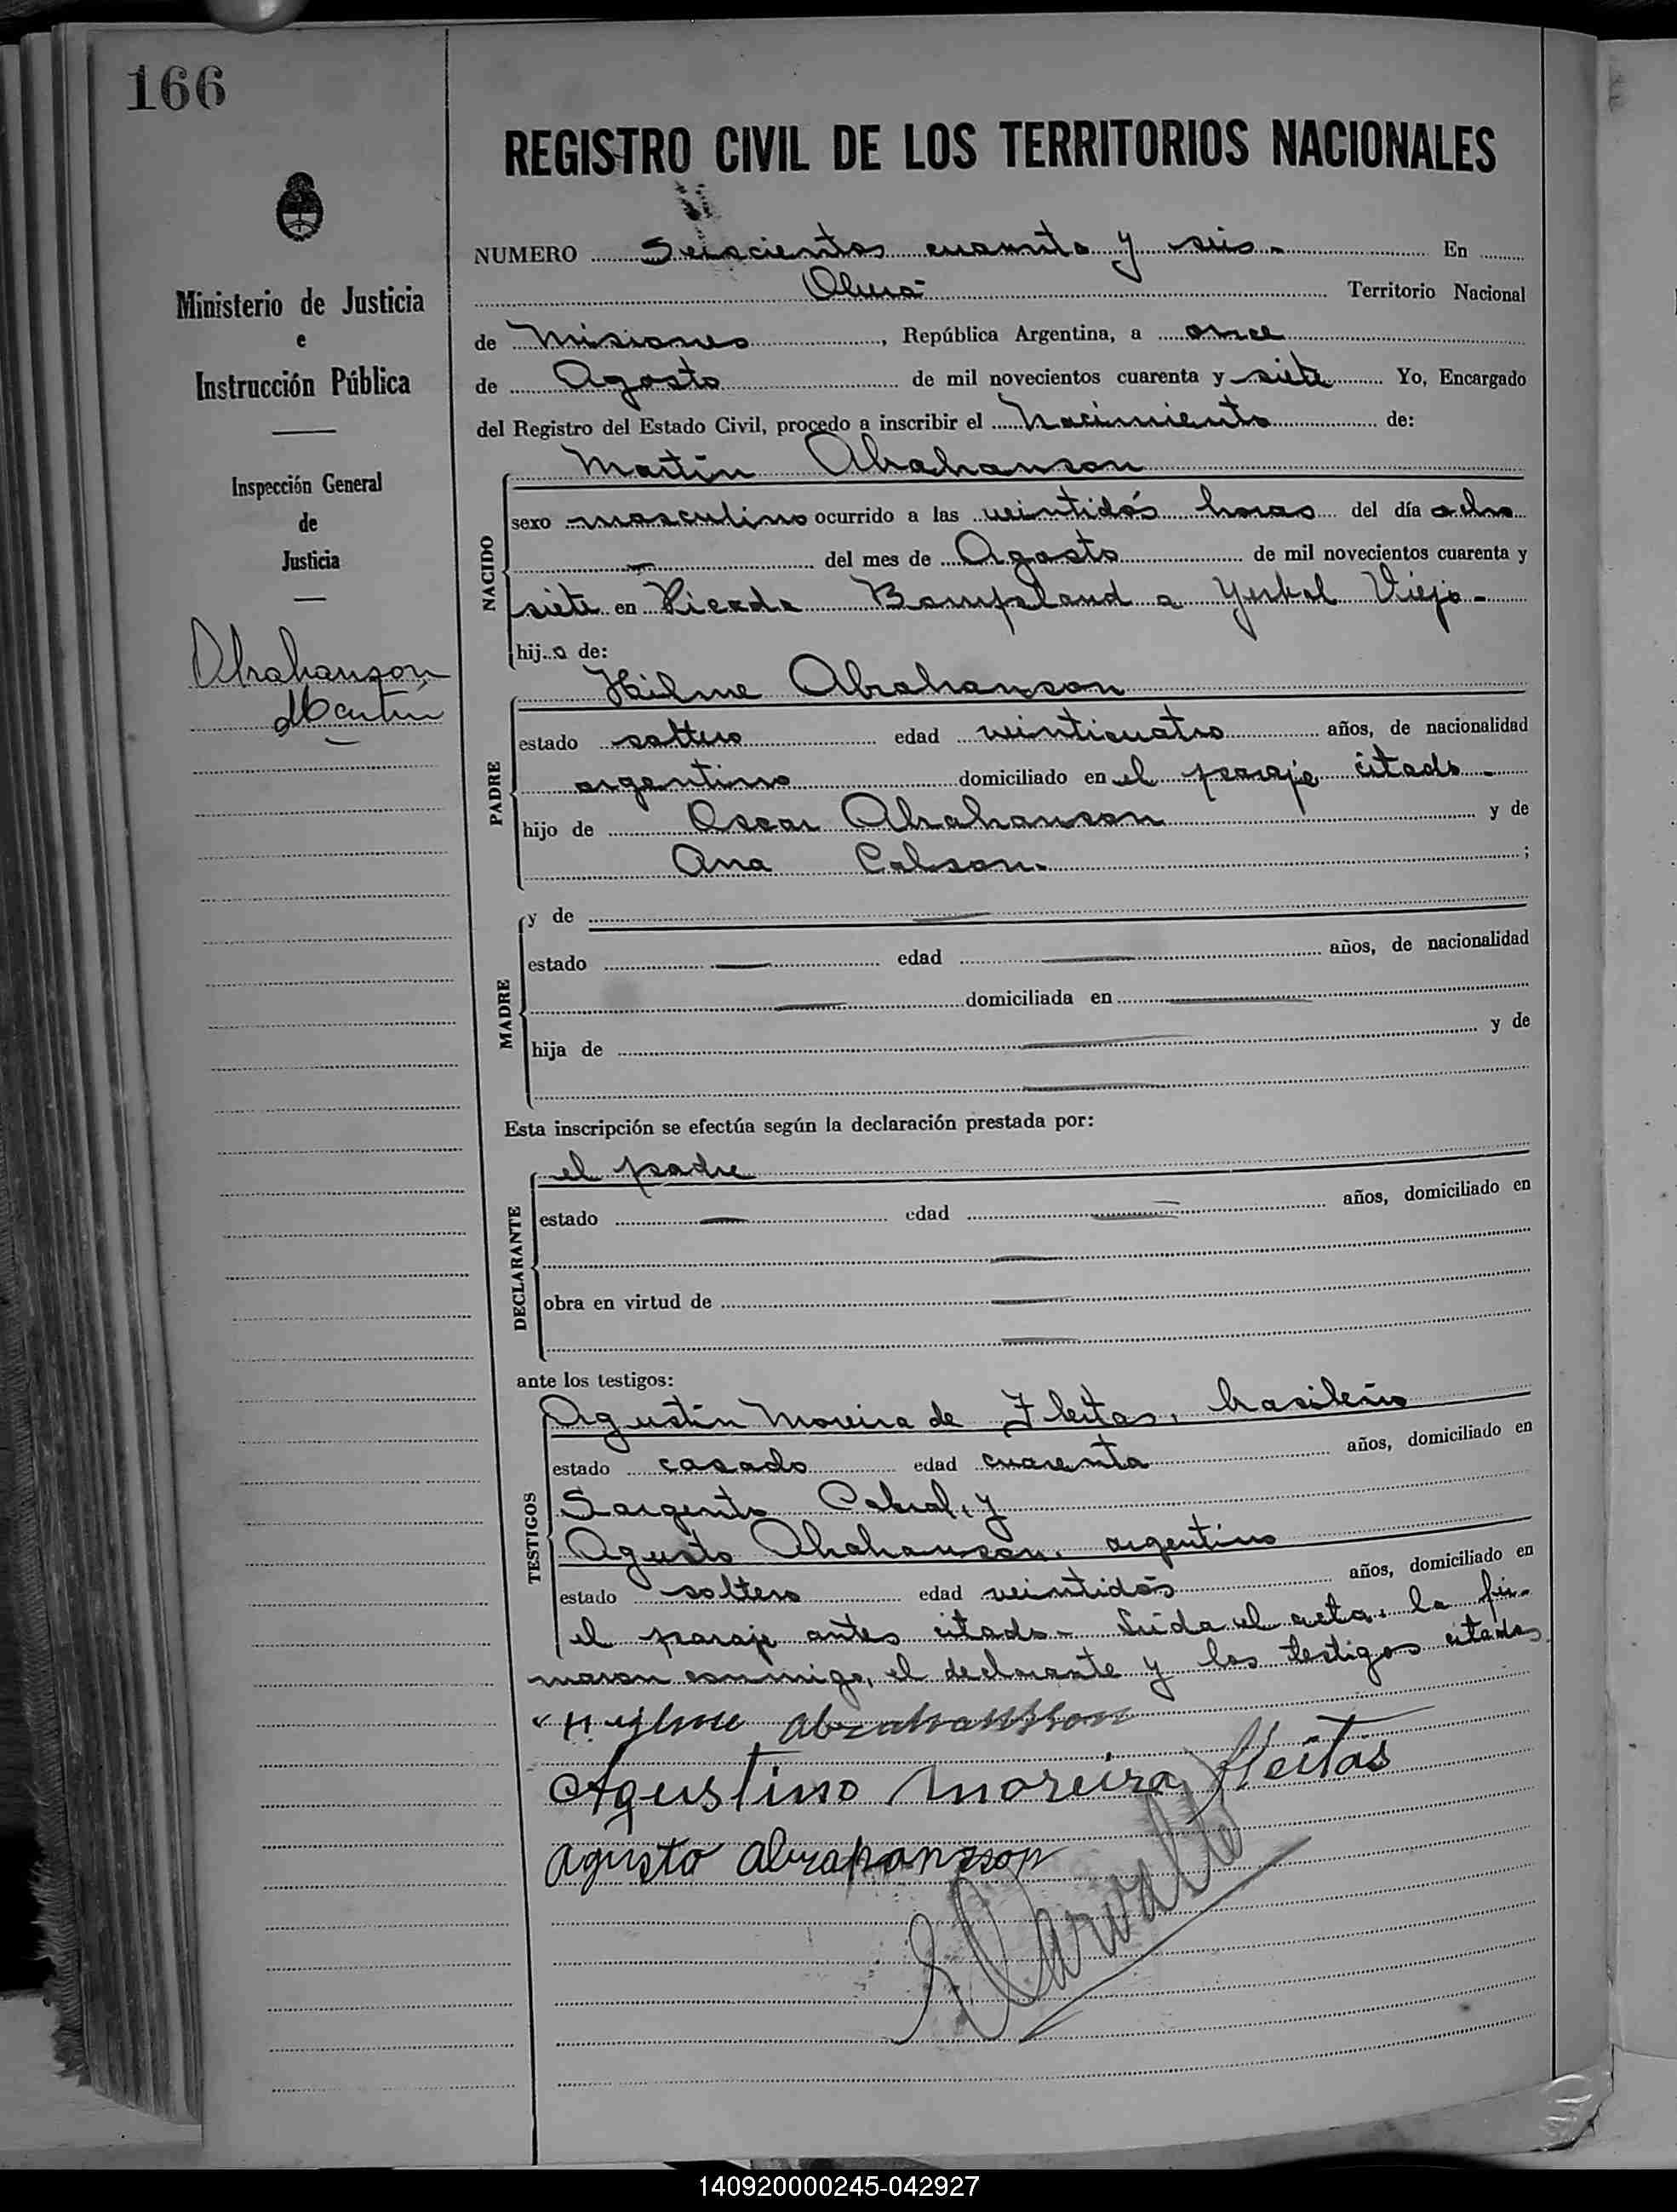 166
REGISTRO CIVIL DE LOS TERRITORIOS NACIONALES
Ministerio de Justicia
e
Instrucción Pública
Inspección General
de
Justicia
Abrahanson
Martín
NUMERO Seiscientos cuarenta y seis - En
Oberá Territorio Nacional
de Misiones, República Argentina, a once
de Agosto de mil novecientos cuarenta y siete Yo, Encargado
del Registro del Estado Civil, procedo a inscribir el Nacimiento de:
NACIDO
Martin Abrahanson
sexo masculino ocurrido a las veintidós horas del día ocho
del mes de Agosto de mil novecientos cuarenta y
siete en Picada Bompland a Yerbal Viejo -
hijo de:
PADRE
Hilme Abrahanson
estado soltero edad veinticuatro años, de nacionalidad
argentino domiciliado en el paraje citado -
hijo de Oscar Abrahanson y de
Ana ;
MADRE
y de
estado edad años, de nacionalidad
domiciliada en
hija de y de
Esta inscripción se efectúa según la declaración prestada por:
DECLARANTE
el padre
estado edad años, domiciliado en
obra en virtud de
ante los testigos:
TESTIGOS
Agustín Moreira de Fleitas, brasileño
estado casado edad cuarenta años, domiciliado en
Sargento Cabral, y
Agusto Abrahanson, argentino
estado soltero edad veintidós años, domiciliado en
el paraje antes citado - Leída el acta, la fir-
maron conmigo, el declarante y los testigos citados
Abrahansson
Agustino Moreira Fleitas
Agusto Abrahansson
140920000245-042927